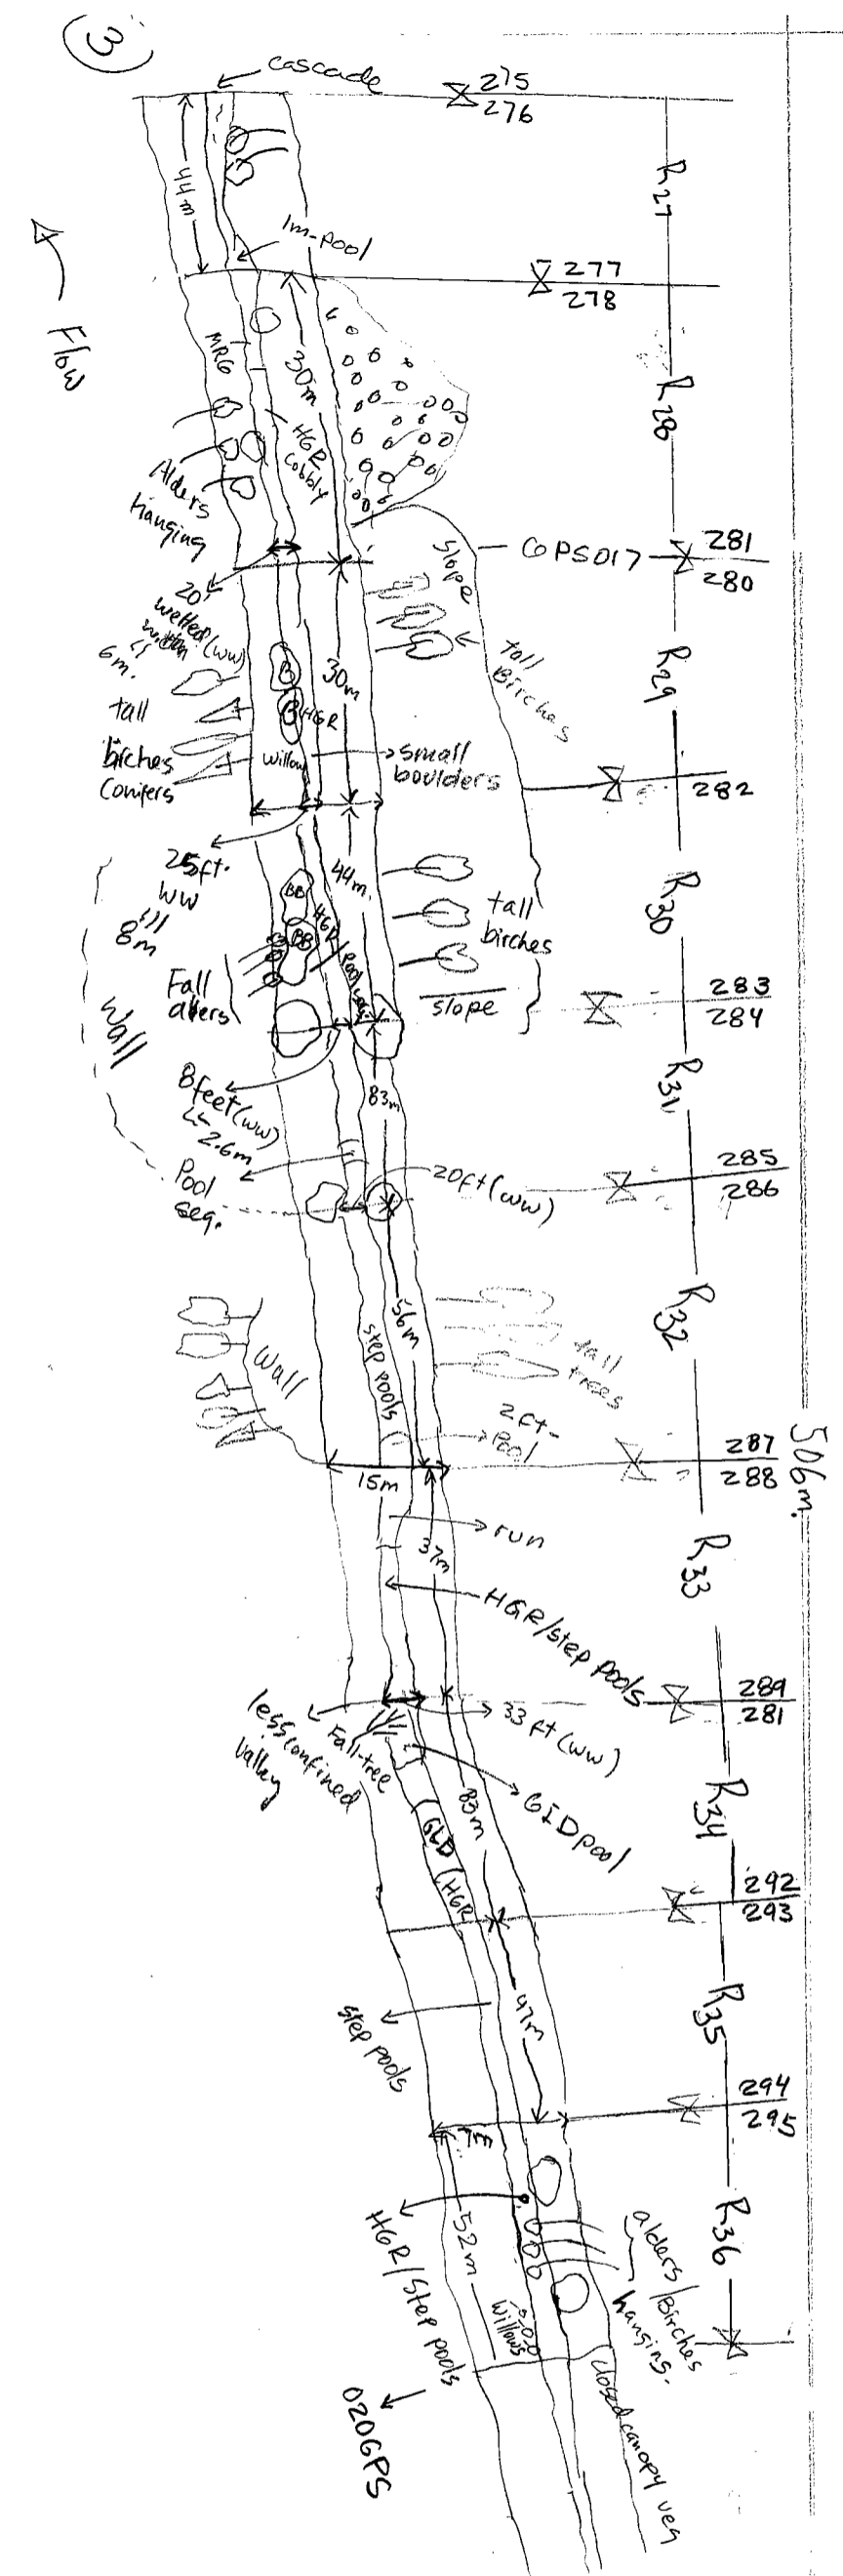 3
cascade
275
276
44m
R27
1m-pool
277
278
Flow
MRG
30m
R28
HGR
cobbly
Alders
hanging
slope
GPS017
281
280
20'
wetted (ww)
width
6m.
tall
Birches
R29
30m
HGR
tall
birches
conifers
willow
small
boulders
282
25ft.
ww
8m
44m.
BB
HGR/
BB
R30
tall
birches
Fall
alders
slope
283
284
Wall
83m
R31
8feet (ww)
2.6m
Pool
seq.
20ft (ww)
285
286
R32
56m
step pools
Wall
tall
trees
2ft-
Pool
287
288
506m.
15m
run
37m
R33
HGR/step pools
289
281
less confined
valley
Fall-tree
33 ft (ww)
83m
GLD pool
R34
GLD
HGR
292
293
step pools
47m
R35
294
295
7m
HGR/Step pools
52m
R36
alders/Birches
hanging.
willows
closed canopy veg
020GPS